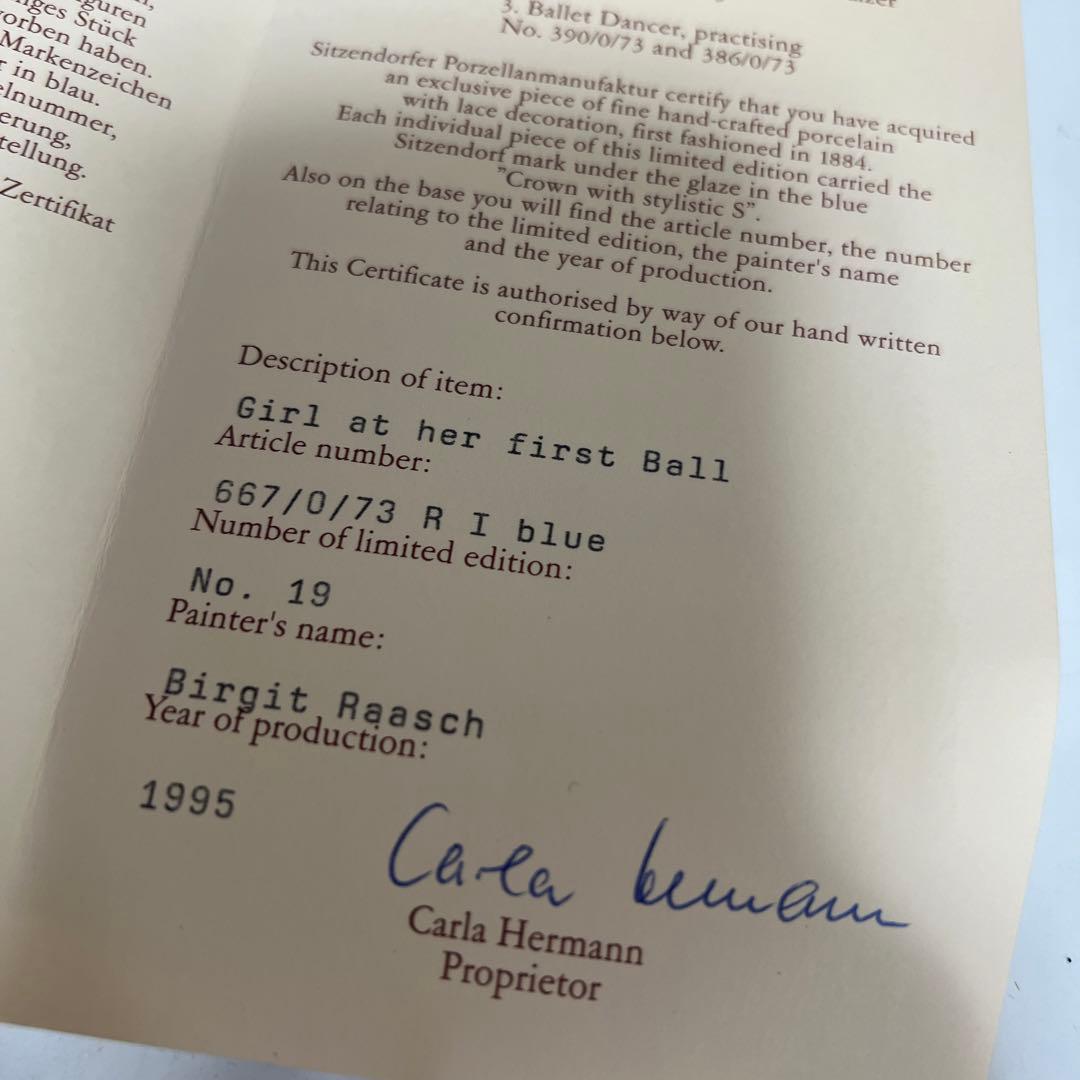 guren
iges Stück
orben haben.
Markenzeichen
r in blau.
elnummer,
erung,
tellung.
Zertifikat
3. Ballet Dancer, practising
No. 390/0/73 and 386/0/73
Sitzendorfer Porzellanmanufaktur certify that you have acquired
an exclusive piece of fine hand-crafted porcelain
with lace decoration, first fashioned in 1884.
Each individual piece of this limited edition carried the
Sitzendorf mark under the glaze in the blue
"Crown with stylistic S".
Also on the base you will find the article number, the number
relating to the limited edition, the painter's name
and the year of production.
This Certificate is authorised by way of our hand written
confirmation below.
Description of item:
Girl at her first Ball
Article number:
667/0/73 R I blue
Number of limited edition:
No. 19
Painter's name:
Birgit Raasch
Year of production:
1995
Carla Hermann
Carla Hermann
Proprietor